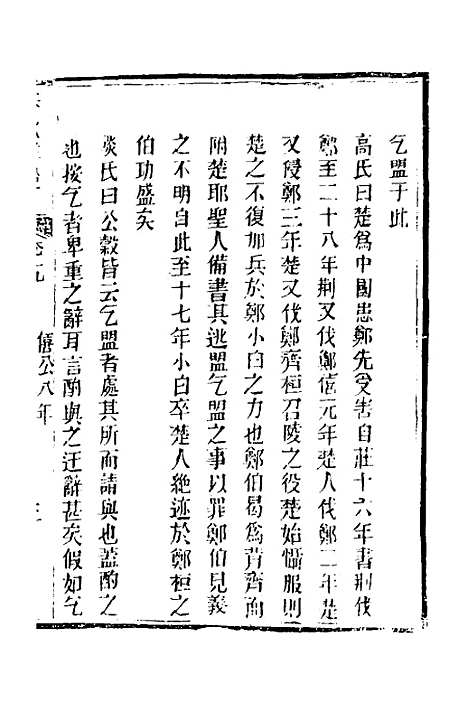 乞盟于此
高氏曰楚爲中國患鄭先受害自莊十六年書荆伐
鄭至二十八年荆又伐鄭僖元年楚人伐鄭二年楚
又侵鄭三年楚又伐鄭齊桓召陵之役楚始懾服則
楚之不復加兵於鄭小白之力也鄭伯曷爲背齊而
附楚耶聖人備書其逃盟乞盟之事以罪鄭伯見義
之不明自此至十七年小白卒楚人絶迹於鄭桓之
伯功盛矣
啖氏曰公榖皆云乞盟者處其所而請與也蓋酌之
也按乞者卑重之辭耳言酌與之迂辭甚矣假如乞
僖公八年